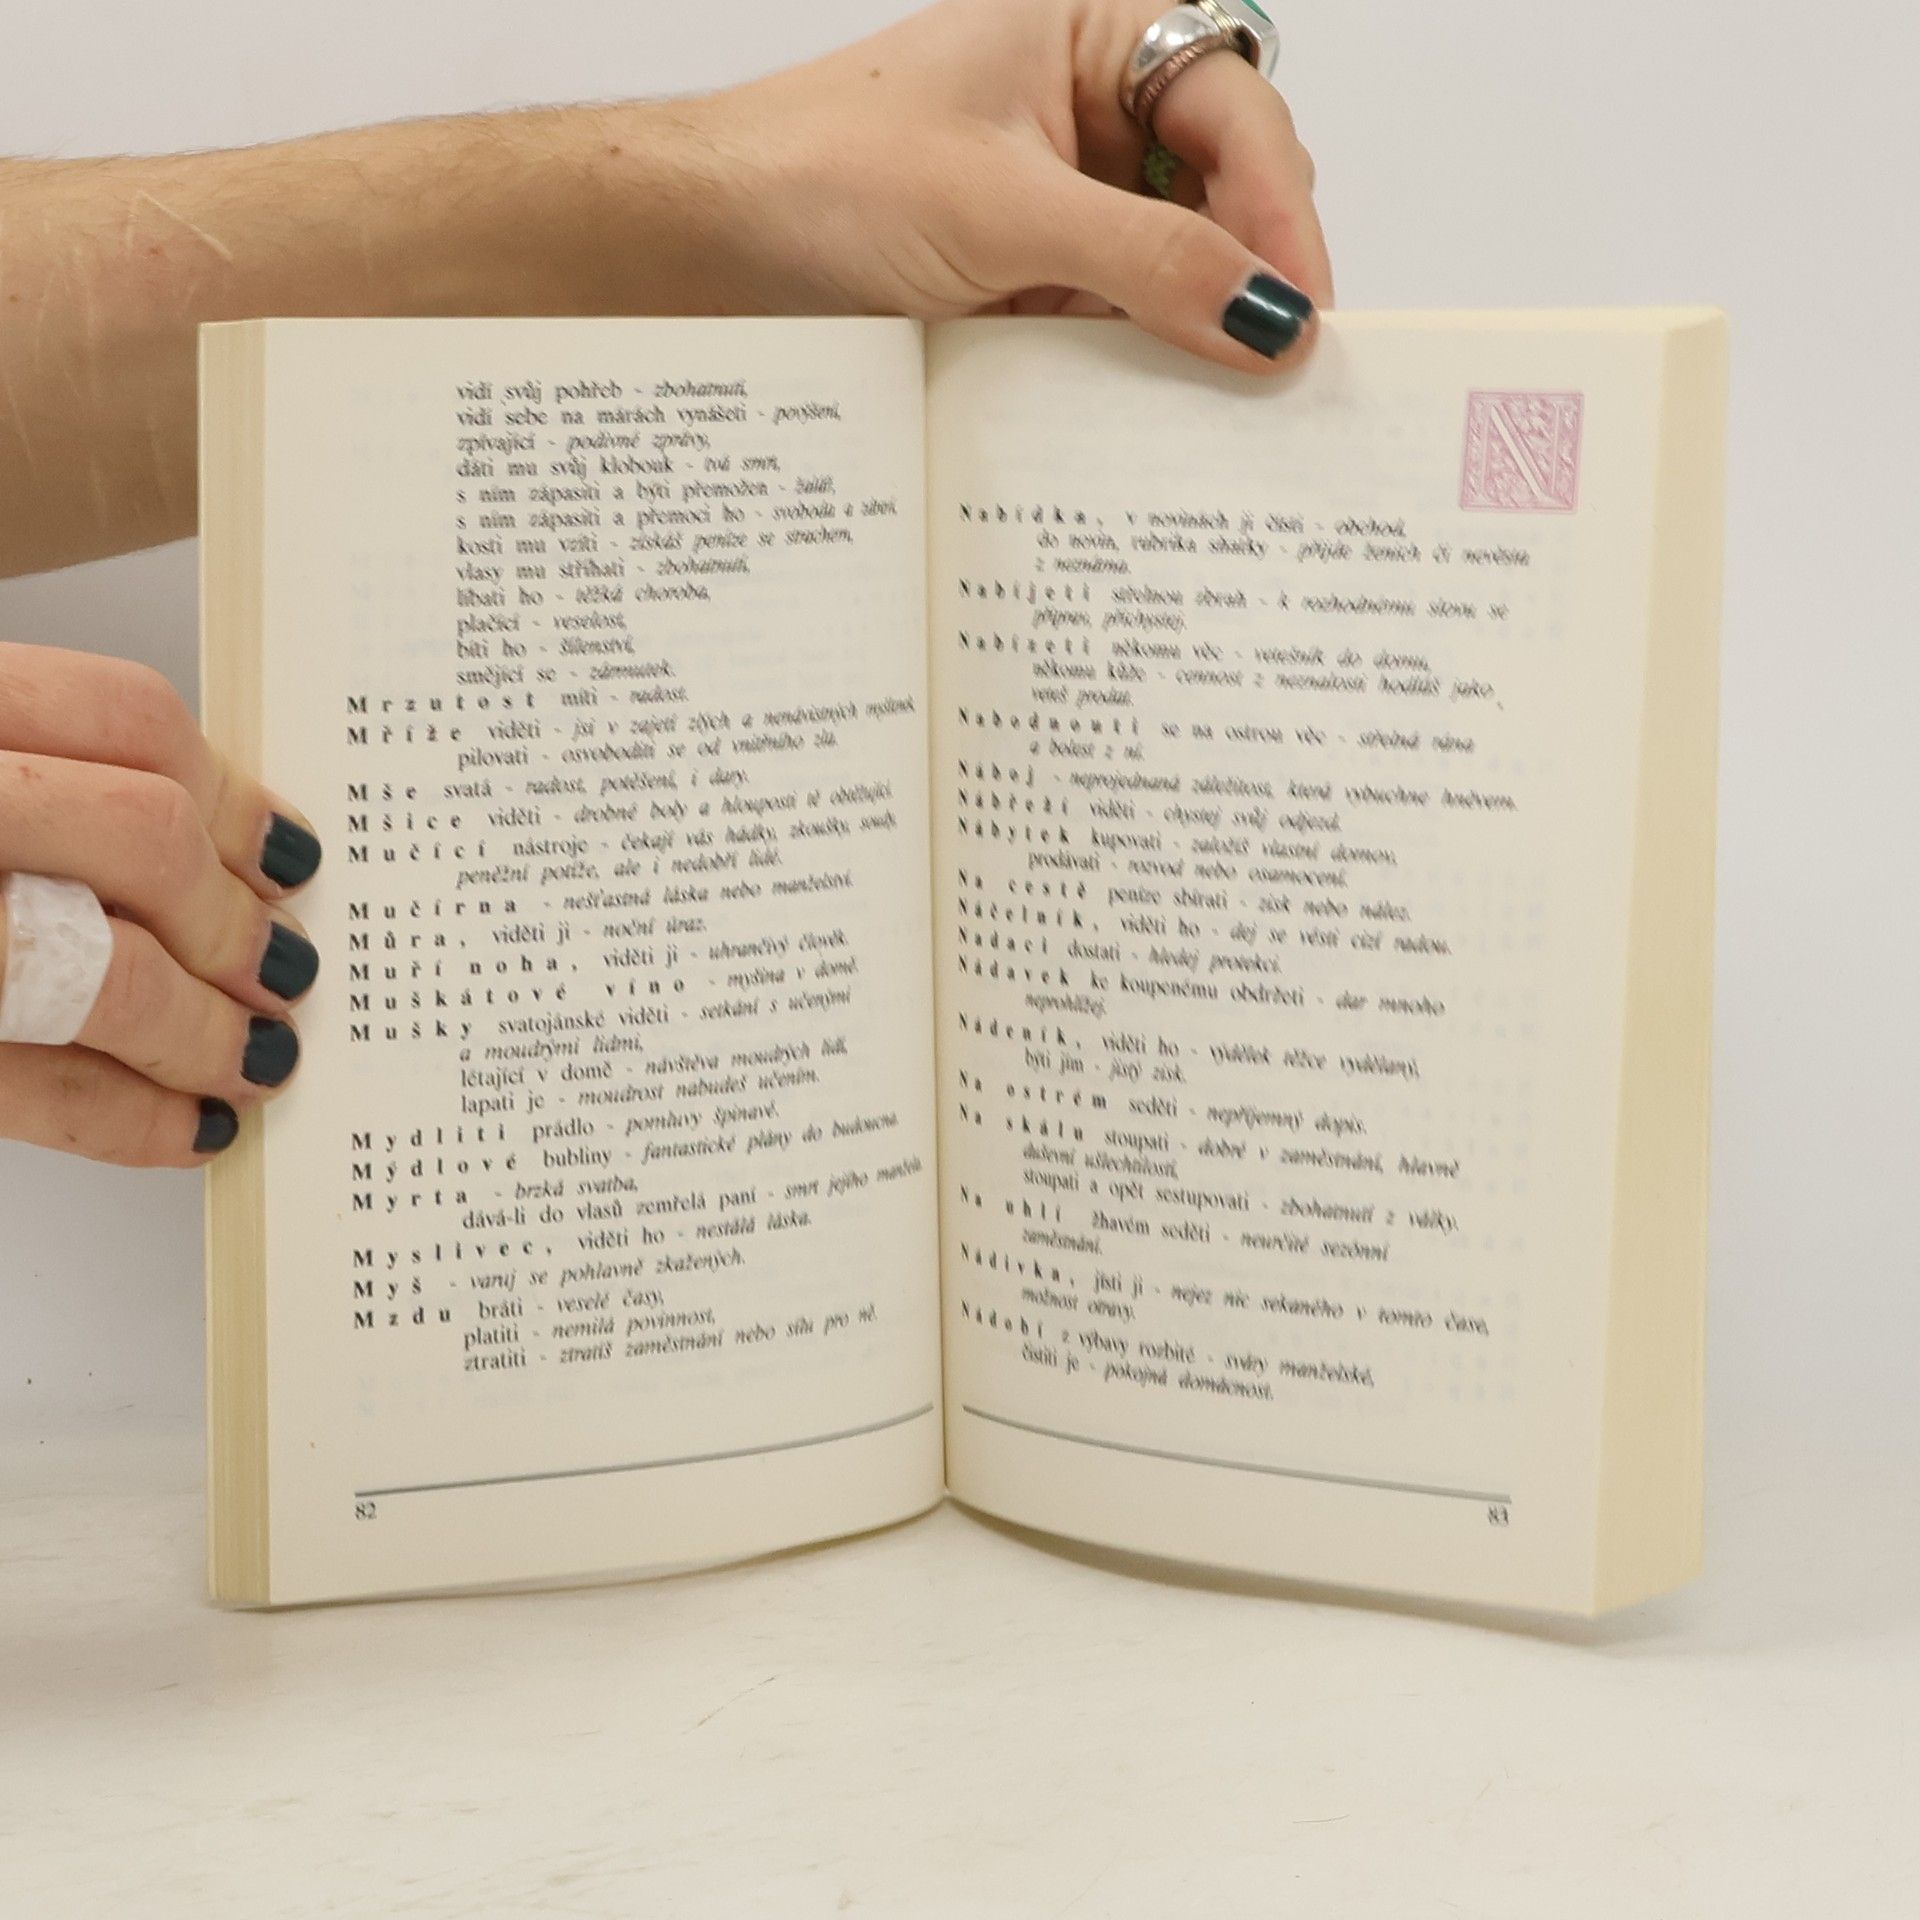 vidí svůj pohřeb - zbohatnutí,
vidí sebe na márách vynášeti - povýšení,
zpívající - podivné zprávy,
dáti mu svůj klobouk - tvá smrt,
s ním zápasiti a býti přemožen - žalář,
s ním zápasiti a přemoci ho - svoboda a
kosti mu vzíti - získáš peníze se strachem,
vlasy mu stříhati - zbohatnutí,
líbati ho - těžká choroba,
plačící - veselost,
bíti ho - šílenství,
smějící se - zármutek.
Mrzutost míti - radost.
Mříže viděti - jsi v zajetí zlých a nenávistných myšlenek.
pilovati - osvoboditi se od vnitřního zla.
Mše svatá - radost, potěšení, i dary.
Mšice viděti - drobné boly a hlouposti tě obtěžující.
Mučící nástroje - čekají vás hádky, zkoušky, soudy,
peněžní potíže, ale i nedobří lidé.
Mučírna - nešťastná láska nebo manželství.
Můra, viděti ji - noční úraz.
Muří noha, viděti ji - uhrančivý člověk.
Muškátové víno - myšina v domě.
Mušky svatojánské viděti - setkání s učenými
a moudrými lidmi,
létající v domě - návštěva moudrých lidí,
lapati je - moudrost nabudeš učením.
Mydliti prádlo - pomluvy špinavé.
Mýdlové bubliny - fantastické plány do budoucna.
Myrta - brzká svatba,
dává-li do vlasů zemřelá paní - smrt jejího manžela.
Myslivec, viděti ho - nestálá láska.
Myš - varuj se pohlavně zkažených.
Mzdu bráti - veselé časy,
platiti - nemilá povinnost,
ztratiti - ztratíš zaměstnání nebo sílu pro ně.
82
N
Nabídka, v novinách ji čísti - obchod,
do novin, rubrika sňatky - přijde ženich či nevěsta
z neznáma.
Nabíjeti střelnou zbraň - k rozhodnému slovu se
připrav, přichystej.
Nabízeti někomu věc - vetešník do domu,
někomu kůže - cennost z neznalosti hodláš jako
veteš prodat.
Nabodnouti se na ostrou věc - střelná rána
a bolest z ní.
Náboj - neprojednaná záležitost, která vybuchne hněvem.
Nábřeží viděti - chystej svůj odjezd.
Nábytek kupovati - založíš vlastní domov,
prodávati - rozvod nebo osamocení.
Na cestě peníze sbírati - zisk nebo nález.
Náčelník, viděti ho - dej se vésti cizí radou.
Nadaci dostati - hledej protekci.
Nádavek ke koupenému obdržeti - dar mnoho
neprohlížej.
Nádeník, viděti ho - výdělek těžce vydělaný,
býti jím - jistý zisk.
Na ostrém seděti - nepříjemný dopis.
Na skálu stoupati - dobré v zaměstnání, hlavně
duševní ušlechtilosti,
stoupati a opět sestupovati - zbohatnutí z války.
Na uhlí žhavém seděti - neurčité sezónní
zaměstnání.
Nádivka, jísti ji - nejez nic sekaného v tomto čase,
možnost otravy.
Nádobí z výbavy rozbité - sváry manželské,
čistiti je - pokojná domácnost.
83